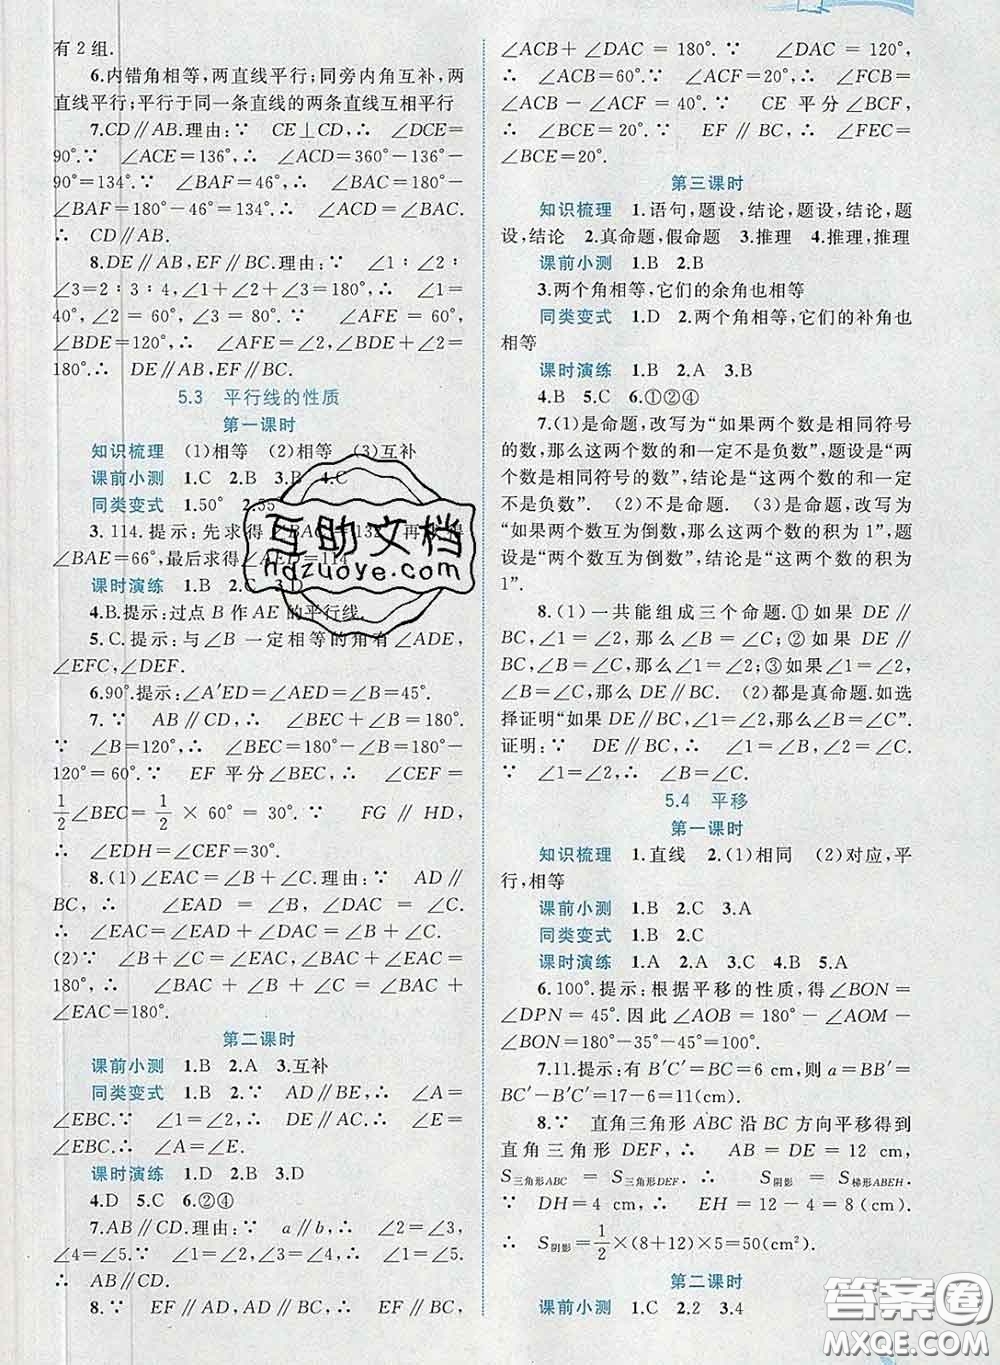 有2组.
6.内错角相等,两直线平行;同旁内角互补,两
直线平行;平行于同一条直线的两条直线互相平行
7.CD∥AB.理由:∵ CE⊥CD,∴ ∠DCE=
90°.∵ ∠ACE=136°,∴ ∠ACD=360°-136°-
90°=134°.∵ ∠BAF=46°,∴ ∠BAC=180°-
∠BAF=180°-46°=134°.∴ ∠ACD=∠BAC.
∴ CD∥AB.
8.DE∥AB,EF∥BC.理由:∵ ∠1∶∠2∶
∠3=2∶3∶4,∠1+∠2+∠3=180°,∴ ∠1=
40°,∠2=60°,∠3=80°.∵ ∠AFE=60°,
∠BDE=120°,∴ ∠AFE=∠2,∠BDE+∠2=
180°.∴ DE∥AB,EF∥BC.
5.3 平行线的性质
第一课时
知识梳理 (1)相等 (2)相等 (3)互补
课前小测 1.C 2.B 3.B 4.C
同类变式 1.50° 2.55
3.114.提示:先求得∠BAC=132 再求得
∠BAE=66°,最后求得∠AED=114
课时演练 1.B 2.C 3.D
4.B.提示:过点B作AE的平行线.
5.C.提示:与∠B一定相等的角有∠ADE,
∠EFC,∠DEF.
6.90°.提示:∠A′ED=∠AED=∠B=45°.
7.∵ AB∥CD,∴ ∠BEC+∠B=180°.
∵ ∠B=120°,∴ ∠BEC=180°-∠B=180°-
120°=60°.∵ EF平分∠BEC,∴ ∠CEF=
1/2∠BEC=1/2×60°=30°.∵ FG∥HD,
∴ ∠EDH=∠CEF=30°.
8.(1)∠EAC=∠B+∠C.理由:∵ AD∥
BC,∴ ∠EAD=∠B,∠DAC=∠C.
∴ ∠EAC=∠EAD+∠DAC=∠B+∠C.
(2)∵ ∠B+∠C=∠EAC,∠BAC+∠EAC=
180°,∴ ∠BAC+∠B+∠C=∠BAC+
∠EAC=180°.
第二课时
课前小测 1.B 2.A 3.互补
同类变式 1.B 2.∵ AD∥BE,∴ ∠A=
∠EBC.∵ ∠1=∠2,∴ DE∥AC.∴ ∠E=
∠EBC.∴ ∠A=∠E.
课时演练 1.D 2.B 3.D
4.D 5.C 6.②④
7.AB∥CD.理由:∵ a∥b,∴ ∠2=∠3,
∠4=∠5.∵ ∠1=∠2,∠3=∠4,∴ ∠1=∠5.
∴ AB∥CD.
8.∵ EF∥AD,AD∥BC,∴ EF∥BC,
∠ACB+∠DAC=180°.∵ ∠DAC=120°,
∴ ∠ACB=60°.∵ ∠ACF=20°,∴ ∠FCB=
∠ACB-∠ACF=40°.∵ CE平分∠BCF,
∴ ∠BCE=20°.∵ EF∥BC,∴ ∠FEC=
∠BCE=20°.
第三课时
知识梳理 1.语句,题设,结论,题设,结论,题
设,结论 2.真命题,假命题 3.推理 4.推理,推理
课前小测 1.B 2.B
3.两个角相等,它们的余角也相等
同类变式 1.D 2.两个角相等,它们的补角也
相等
课时演练 1.B 2.A 3.B
4.B 5.C 6.①②④
7.(1)是命题,改写为“如果两个数是相同符号
的数,那么这两个数的和一定不是负数”,题设是“两
个数是相同符号的数”,结论是“这两个数的和一定
不是负数” (2)不是命题. (3)是命题,改写为
“如果两个数互为倒数,那么这两个数的积为1”,题
设是“两个数互为倒数”,结论是“这两个数的积为
1”.
8.(1)一共能组成三个命题.①如果DE∥
BC,∠1=∠2,那么∠B=∠C;②如果DE∥
BC,∠B=∠C,那么∠1=∠2;③如果∠1=∠2,
∠B=∠C,那么DE∥BC. (2)都是真命题.如选
择证明“如果DE∥BC,∠1=∠2,那么∠B=∠C”.
证明:∵ DE∥BC,∴ ∠1=∠B,∠2=∠C.
∵ ∠1=∠2,∴ ∠B=∠C.
5.4 平移
第一课时
知识梳理 1.直线 2.(1)相同 (2)对应,平
行,相等
课前小测 1.B 2.C 3.A
同类变式 1.B 2.C
课时演练 1.A 2.A 3.C 4.B 5.A
6.100°.提示:根据平移的性质,得∠BON=
∠DPN=45°.因此∠AOB=180°-∠AOM-
∠BON=180°-35°-45°=100°.
7.11.提示:有B′C′=BC=6 cm,则a=BB′=
BC′-B′C′=17-6=11(cm).
8.∵ 直角三角形ABC沿BC方向平移得到
直角三角形DEF,∴ AB=DE=12 cm,
S三角形ABC=S三角形DEF.∴ S阴影=S梯形ABEH.
∵ DH=4 cm,∴ EH=12-4=8(cm).
∴ S阴影=1/2×(8+12)×5=50(cm²).
第二课时
课前小测 1.C 2.2 3.4
互助文档
hdzuoye.com
答案圈
MXQE.COM